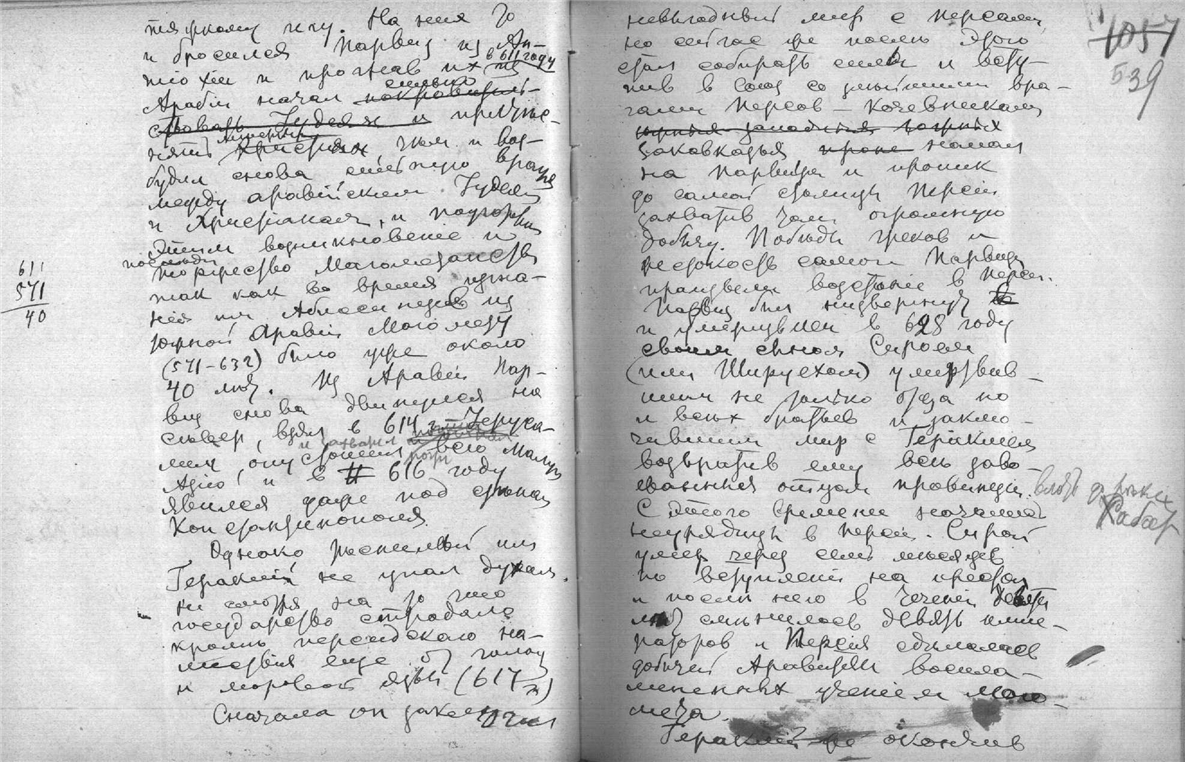 тяжкому игу. На них то
и бросился Парвиз из Ан-
тиохии и прогнав их из в 611 году
Аравии начал сильно покровитель-
ствовать Иудеям и притѣс-
нять христиан чем и воз-
будил снова сильную вражду
между аравийскими Иудеями
и Христианами, и
этим возникновение и
торжество Магометанства
так как во время изгна-
ния им Абиссинцев из
Южной Аравии Магомету
(571-632) было уже около
40 лет. Из Аравии Пар-
виз снова двинулся на
сѣвер, взял в 614 г. Иеруса-
лим, опустошил всю Малую
Азию и в 616 году
явился даже под стѣнами
Константинополя
611
571
40
Однако тѣснимый им
Гераклий не упал духом.
не смотря на то что
государство страдало
кромѣ персидского на-
шествия еще от голода
и моровой язвы (617 г.)
Сначала он заключил
1057
539
невыгодный мир с персами,
но сейчас же послѣ этого
стал собирать силы и всту-
пив в союз со злѣйшими вра-
гами персов - кочевниками
Закавказья напал
на Парвиза и проник
до самой столицы Персии
захватив там огромную
добычу. Побѣды греков и
жестокость самого Парвиза
произвели возстание в Персии.
Парвиз был низвергнут
и умерщвлен в 628 году
своим сыном Сироем
(или Шируехом) умертвив-
шим не только отца но
и всѣх братьев и заклю-
чившим мир с Гераклием
возвратив ему всѣ заво-
еванныя отцом провинции.
С этого времени начались
неурядицы в Персии. Сирой
умер через семь мѣсяцев
по вступлении на престол
и послѣ него в течении девяти
лѣт смѣнилось девять импе-
раторов и Персия сдѣлалась
добычей Аравитян воспла-
мененных учением Маго-
мета.
Гераклий же окончив